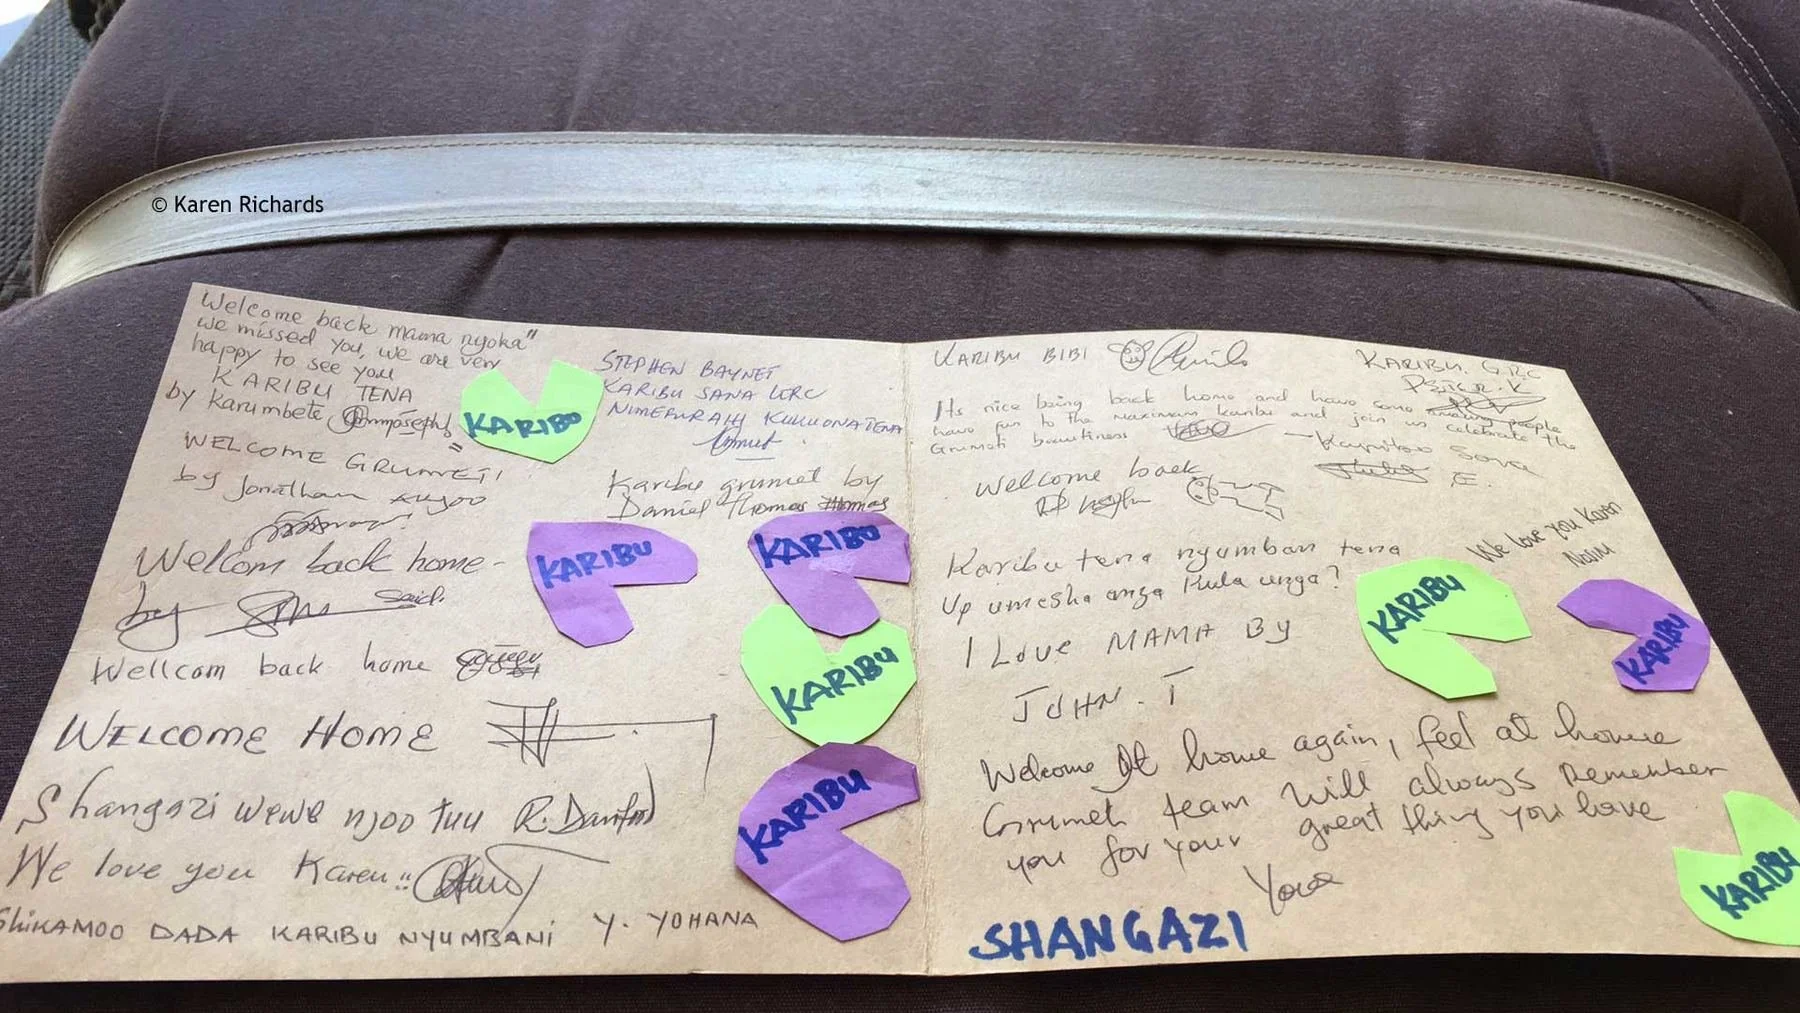 © Karen Richards
Welcome back mama nyoka"
we missed you, we are very
happy to see you
KARIBU TENA
by Karumbete
KARIBU
WELCOME GRUMETI
by Jonatham
Welcom back home -
by Said.
Wellcom back home
WELCOME HOME
Shangazi wewe njoo tuu R. Danford
We love you Karen
SHIKAMOO DADA KARIBU NYUMBANI Y. YOHANA
STEPHEN BAYNET
KARIBU SANA
KUKUONA TENA
Karibu grumet by
Daniel Thomas
KARIBU
KARIBU
KARIBU
KARIBU
KARIBU BIBI
KARIBU. GRC
Its nice being back home and have some people
have fun to the maximum karibu and join us celebrate the
Grumeti
Welcome back
Karibu tena nyumban tena
Kula unga?
We love you Karen
KARIBU
KARIBU
I LOVE MAMA BY
JOHN. T
Welcome home again, feel at home
Grumeti team will always remember
you for your great thing you have
SHANGAZI
KARIBU